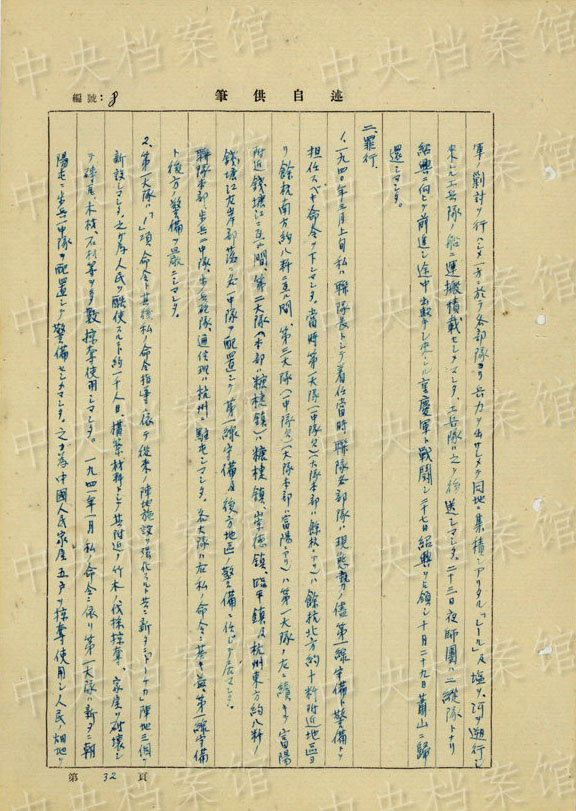 中央档案馆
編號：8
述自供筆
軍ノ剿討ヲ行ハシメ一方ニ於テ各部隊ヨリ兵力ヲ出サシメテ同地ニ集積シアリタル「レール」及塩ヲ河ヲ遡行シ
来レル工兵隊ノ船ニ運搬積載セシメマシタ。工兵隊ハ之ヲ後送シマシタ。二十三日夜師團ハ二縦隊トナリ
紹興ニ向ヒテ前進シ途中出撃シ来レル重慶軍ト戦闘シ二十七日紹興ヲ占領シ十月二十九日蕭山ニ歸
還シマシタ。
二、罪行。
1、一九四〇年三月上旬私ハ聯隊長トシテ着任當時聯隊各部隊ハ現態勢ノ儘第一線守備ト警備トヲ
担任スベキ命令ヲ下シマシタ。當時第一大隊(一中隊欠)(大隊本部ハ餘杭ニアリ)ハ餘杭北方約十粁附近地區ヨ
リ餘杭南方約八粁ニ亙ル間、第三大隊(一中隊欠)(大隊本部ハ富陽ニアリ)ハ第一大隊ノ左ニ續キテ富陽
附近錢塘江ニ亙ル間、第二大隊(本部ハ塘棲鎮)ハ塘棲鎮、崇德鎮、臨平鎮及杭州東方約八粁ノ
錢塘江左岸部落ニ各一中隊ヲ配置シテ第一線守備及後方地區ノ警備ニ任ジテ居マシタ。
聯隊本部、歩兵一中隊、歩兵砲隊、通信班ハ杭州ニ駐屯シマシタ。各大隊ハ右私ノ命令ニ基キ益々第一線守備
ト後方ノ警備ヲ嚴ニシマシタ。
2、第一大隊ハ「1」項命令ト其後私ノ命令指導ニ依テ従来ノ陣地施設ヲ強化スルト共ニ新タニ「トーチカ」陣地三個ヲ
新設シマシタ。之ガ為人民ヲ酷使スルコト約一千人日、構築材料トシテ其附近ノ竹木ノ伐採掠奪、家屋ヲ破壊シ
テ磚瓦、木材、石材等ヲ多数掠奪使用シマシタ。一九四一年一月私ノ命令ニ依リ第一大隊ハ新タニ朝
陽屯ニ歩兵一中隊ヲ配置シテ警備セシメマシタ。之ガ為中國人民家屋五戸ヲ掠奪使用シ人民ノ畑地ヲ
第32頁